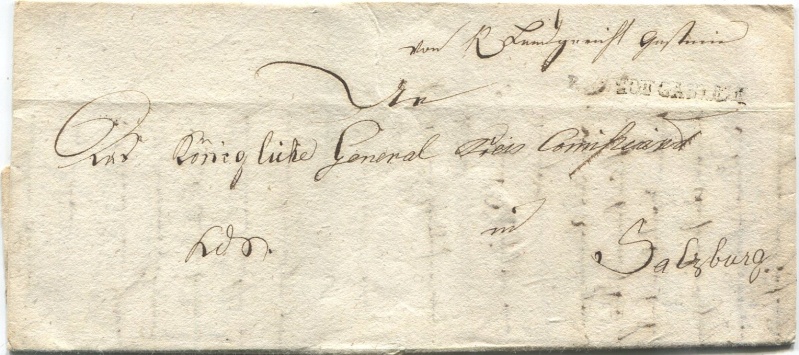 von K Landgericht Gastein
An
Das Königliche General Kreis Comißariat
in
Salzburg.